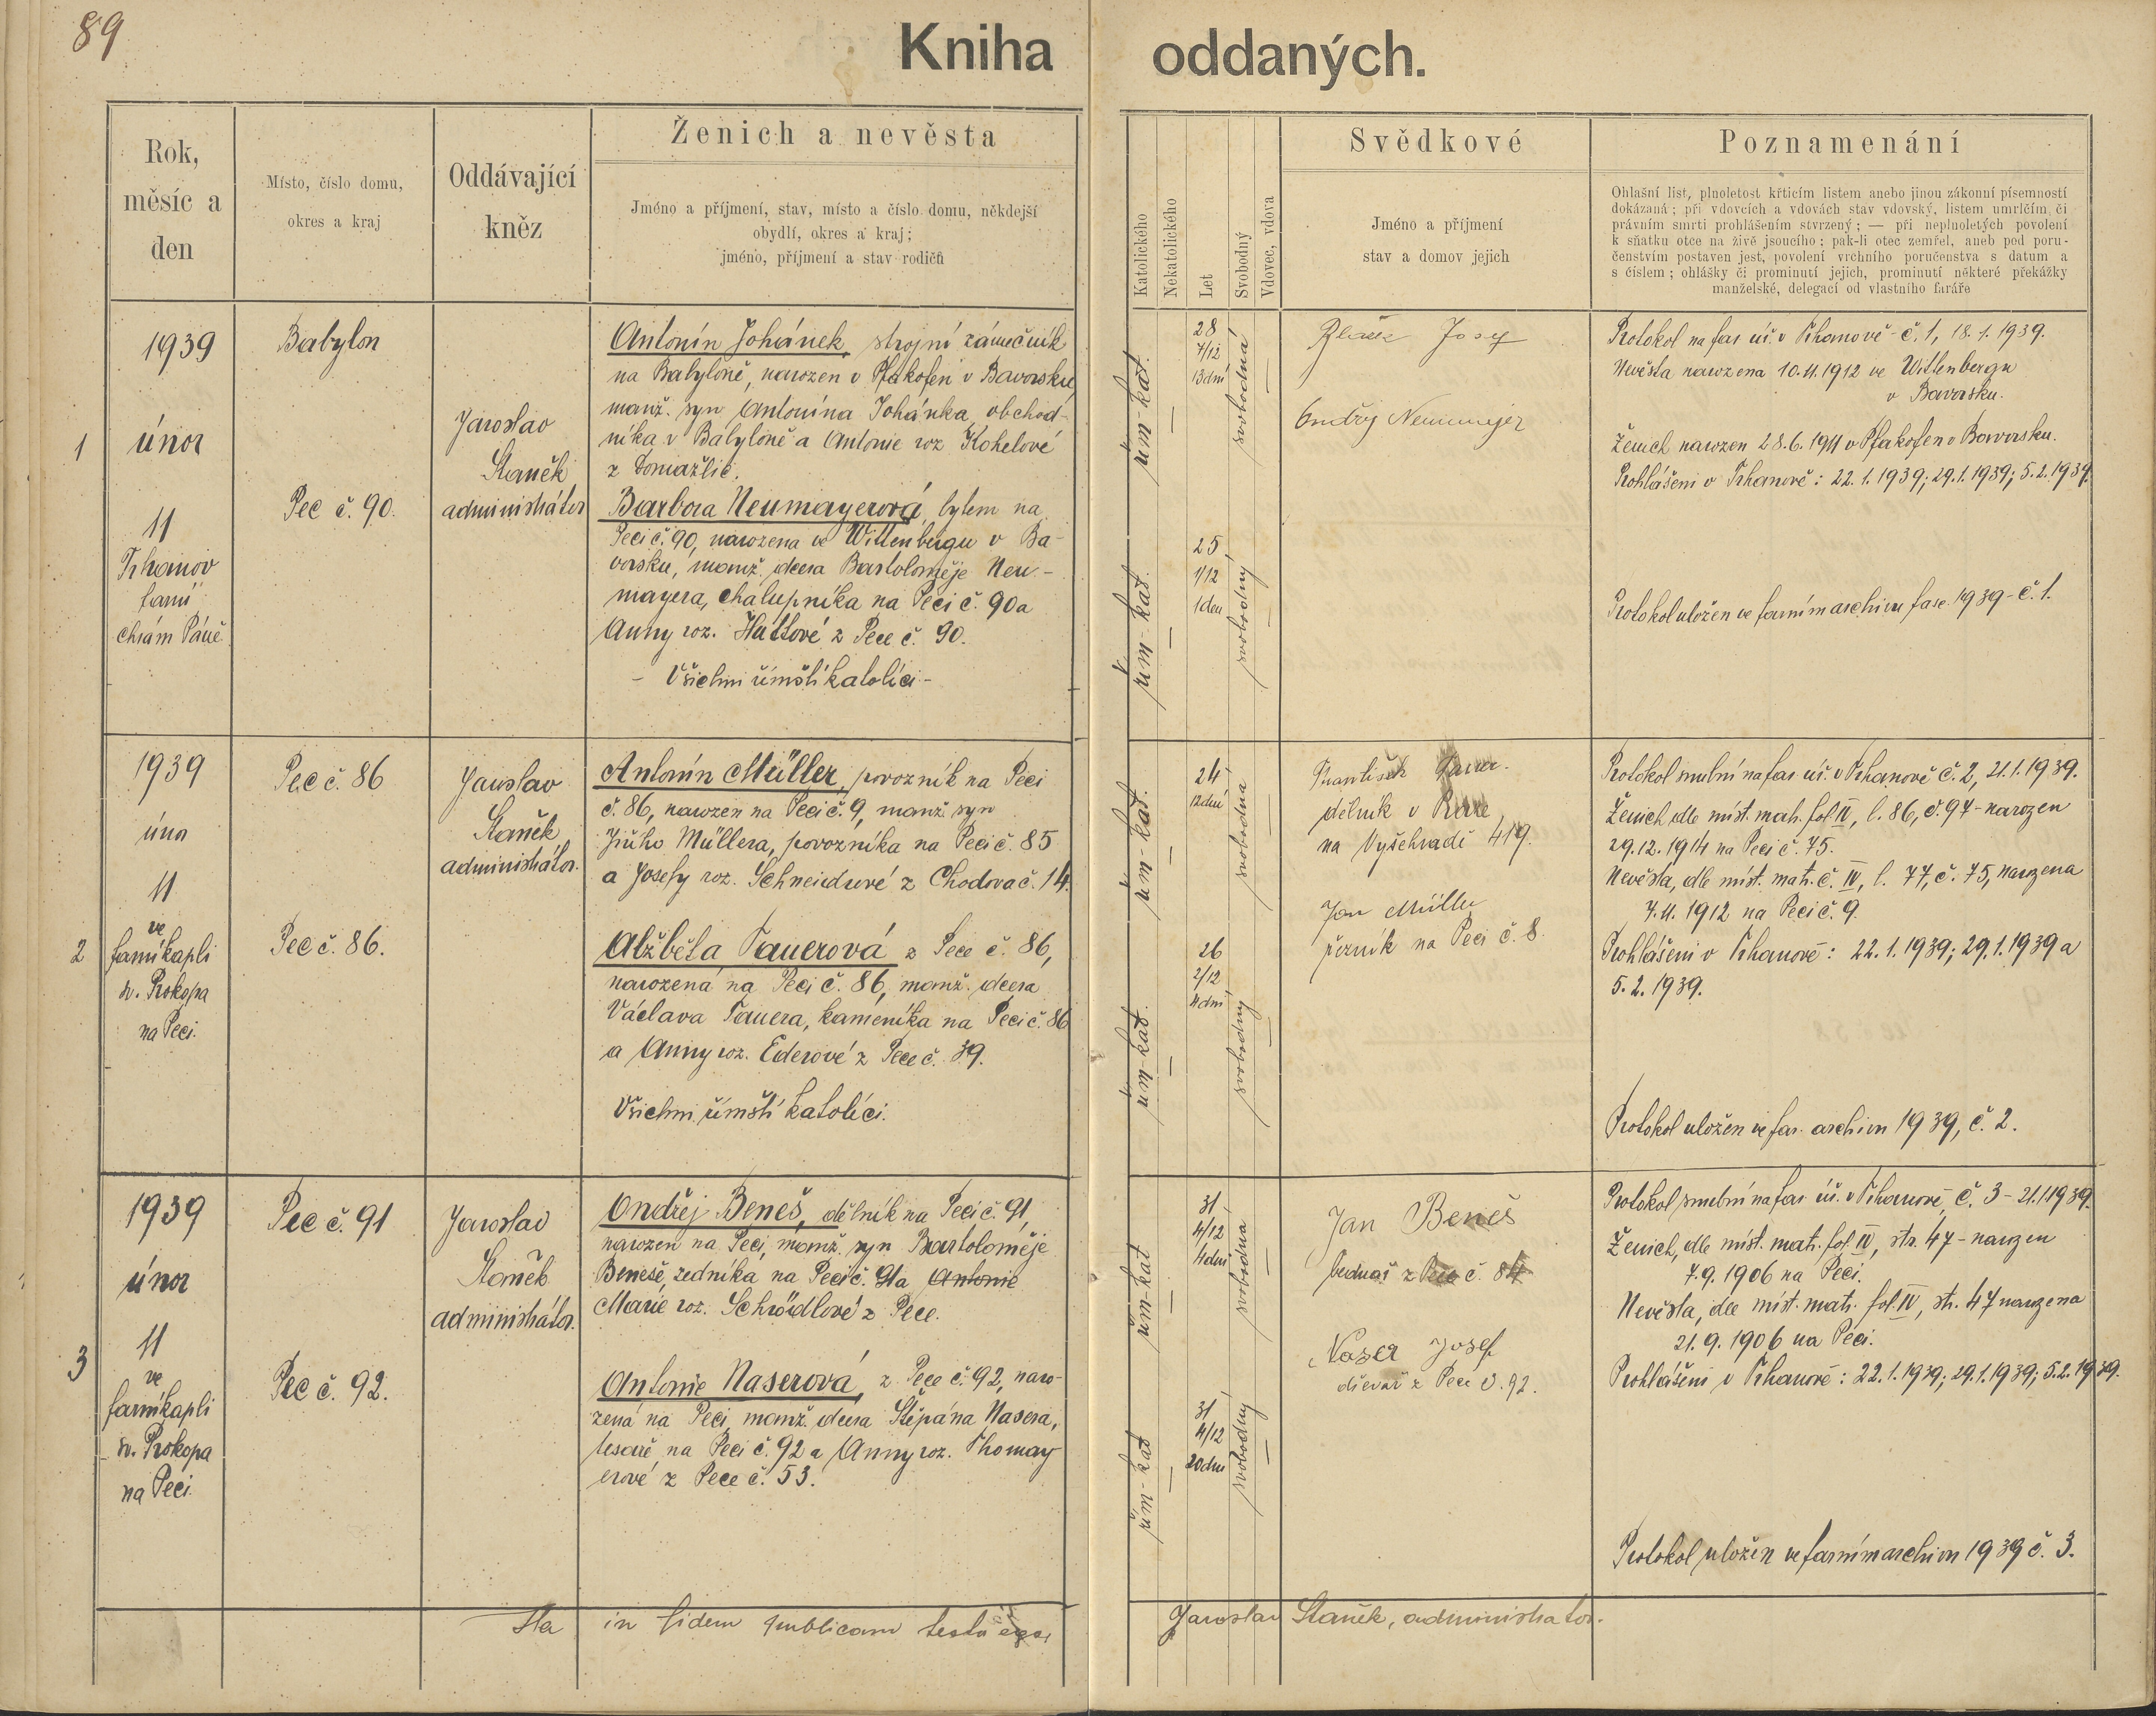 89
Kniha oddaných.
Rok,
měsíc a
den
Místo, číslo domu,
okres a kraj
Oddávající
kněz
Ženich a nevěsta
Jméno a příjmení, stav, místo a číslo domu, někdejší
obydlí, okres a kraj;
jméno, příjmení a stav rodičů
Katolického
Nekatolického
Let
Svobodný
Vdovec, vdova
Svědkové
Jméno a příjmení
stav a domov jejich
Poznamenání
Ohlašní list, plnoletost křticím listem anebo jinou zákonní písemností
dokázaná; při vdovcích a vdovách stav vdovský, listem umrlčím, či
právním smrti prohlášením stvrzený; — při neplnoletých povolení
k sňatku otce na živě jsoucího; pak-li otec zemřel, aneb pod poru-
čenstvím postaven jest, povolení vrchního poručenstva s datum a
s číslem; ohlášky či prominutí jejich, prominutí některé překážky
manželské, delegací od vlastního faráře
1
1939
únor
11
Trhanov
farní
chrám Páně
Babylon
Pec č. 90.
Jaroslav
Staněk
administrátor
Antonín Johánek, strojní zámečník
na Babyloně, narozen v Pfakofen v Bavorsku,
manž. syn Antonína Johánka, obchod-
níka v Babyloně a Antonie roz. Kohelové
z Domažlic.
Barbora Neumayerová, bytem na
Peci č. 90, narozena ve Wittenbergu v Ba-
vorsku, manž. dcera Bartoloměje Neu-
mayera, chalupníka na Peci č. 90 a
Anny roz. Huttové z Pece č. 90.
- Všichni římští katolíci -
řím-kat.
28
7/12
13 dní
svobodná
řím-kat.
25
1/12
1 den
svobodný
Josef
Ondřej Neumayer
Protokol na far. úř. v Trhanově č. 1, 18. 1. 1939.
Nevěsta narozena 10. 11. 1912 ve Wittenbergu
v Bavorsku.
Ženich narozen 28. 6. 1911 v Pfakofen v Bavorsku.
Prohlášeni v Trhanově: 22. 1. 1939; 29. 1. 1939; 5. 2. 1939.
Protokol uložen ve farním archivu fasc. 1939 - č. 1.
2
1939
únor
11
ve
farní kapli
sv. Prokopa
na Peci.
Pec č. 86
Pec č. 86.
Jaroslav
Staněk
administrátor.
Antonín Müller, povozník na Peci
č. 86, narozen na Peci č. 9, manž. syn
Jiřího Müllera, povozníka na Peci č. 85
a Josefy roz. Schneidrové z Chodova č. 14.
Alžběta Tauerová z Pece č. 86,
narozena na Peci č. 86, manž. dcera
Václava Tauera, kameníka na Peci č. 86
a Anny roz. Ederové z Pece č. 39.
Všichni římští katolíci.
řím-kat.
24
12 dní
svobodná
řím-kat.
26
2/12
4 dní
svobodný
František Tauer.
dělník v Praze
na Vyšehradě 419.
Jan Müller
řezník na Peci č. 8.
Protokol snubní na far. úř. v Trhanově č. 2, 21. 1. 1939.
Ženich dle míst. matr. fol. IV, l. 86, č. 97 - narozen
29. 12. 1914 na Peci č. 75.
Nevěsta, dle míst. mat. č. IV, l. 77, č. 75, narozena
7. 11. 1912 na Peci č. 9.
Prohlášeni v Trhanově: 22. 1. 1939; 29. 1. 1939 a
5. 2. 1939.
Protokol uložen ve far. archivu 1939, č. 2.
3
1939
únor
11
ve
farní kapli
sv. Prokopa
na Peci
Pec č. 91
Pec č. 92.
Jaroslav
Staněk
administrátor.
Ondřej Beneš, dělník na Peci č. 91,
narozen na Peci, manž. syn Bartoloměje
Beneše, zedníka na Peci č. 91 a Antonie
Marie roz. Schrödlové z Pece.
Antonie Naserová, z Pece č. 92, naro-
zená na Peci, manž. dcera Štěpána Nasera,
tesaře na Peci č. 92 a Anny roz. Thomay
erové z Pece č. 53.
řím-kat
31
4/12
4 dní
svobodná
řím-kat
31
4/12
20 dní
svobodný
Jan Beneš
bednař z Pece č. 84
Naser Josef
dřevař z Pece č. 92.
Protokol snubní na far. úř. v Trhanově, č. 3 - 21. 1. 1939.
Ženich, dle míst. matr. fol. IV, str. 47 - narozen
7. 9. 1906 na Peci.
Nevěsta, dle míst. matr. fol. IV, str. 47 narozena
21. 9. 1906 na Peci.
Prohlášeni v Trhanově: 22. 1. 1939; 29. 1. 1939; 5. 2. 1939.
Protokol uložen ve farním archivu 1939 č. 3.
Ita in fidem publicam Jaroslav Staněk, administrator.